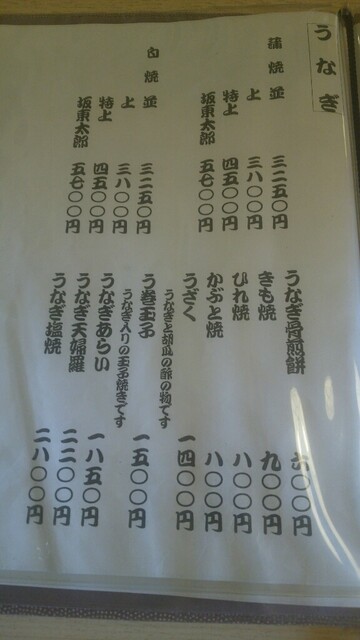 うなぎ
蒲焼 並 三二五〇円
上 三八〇〇円
特上 四五〇〇円
坂東太郎 五七〇〇円
白焼 並 三二五〇円
上 三八〇〇円
特上 四五〇〇円
坂東太郎 五七〇〇円
うなぎ骨煎餅 六〇〇円
きも焼 九〇〇円
ひれ焼 八〇〇円
かぶと焼 八〇〇円
うざく 一四〇〇円
うなぎと胡瓜の酢の物です
う巻玉子 一五〇〇円
うなぎ入りの玉子焼きです
うなぎあらい 一八五〇円
うなぎ天婦羅 二二〇〇円
うなぎ塩焼 二八〇〇円